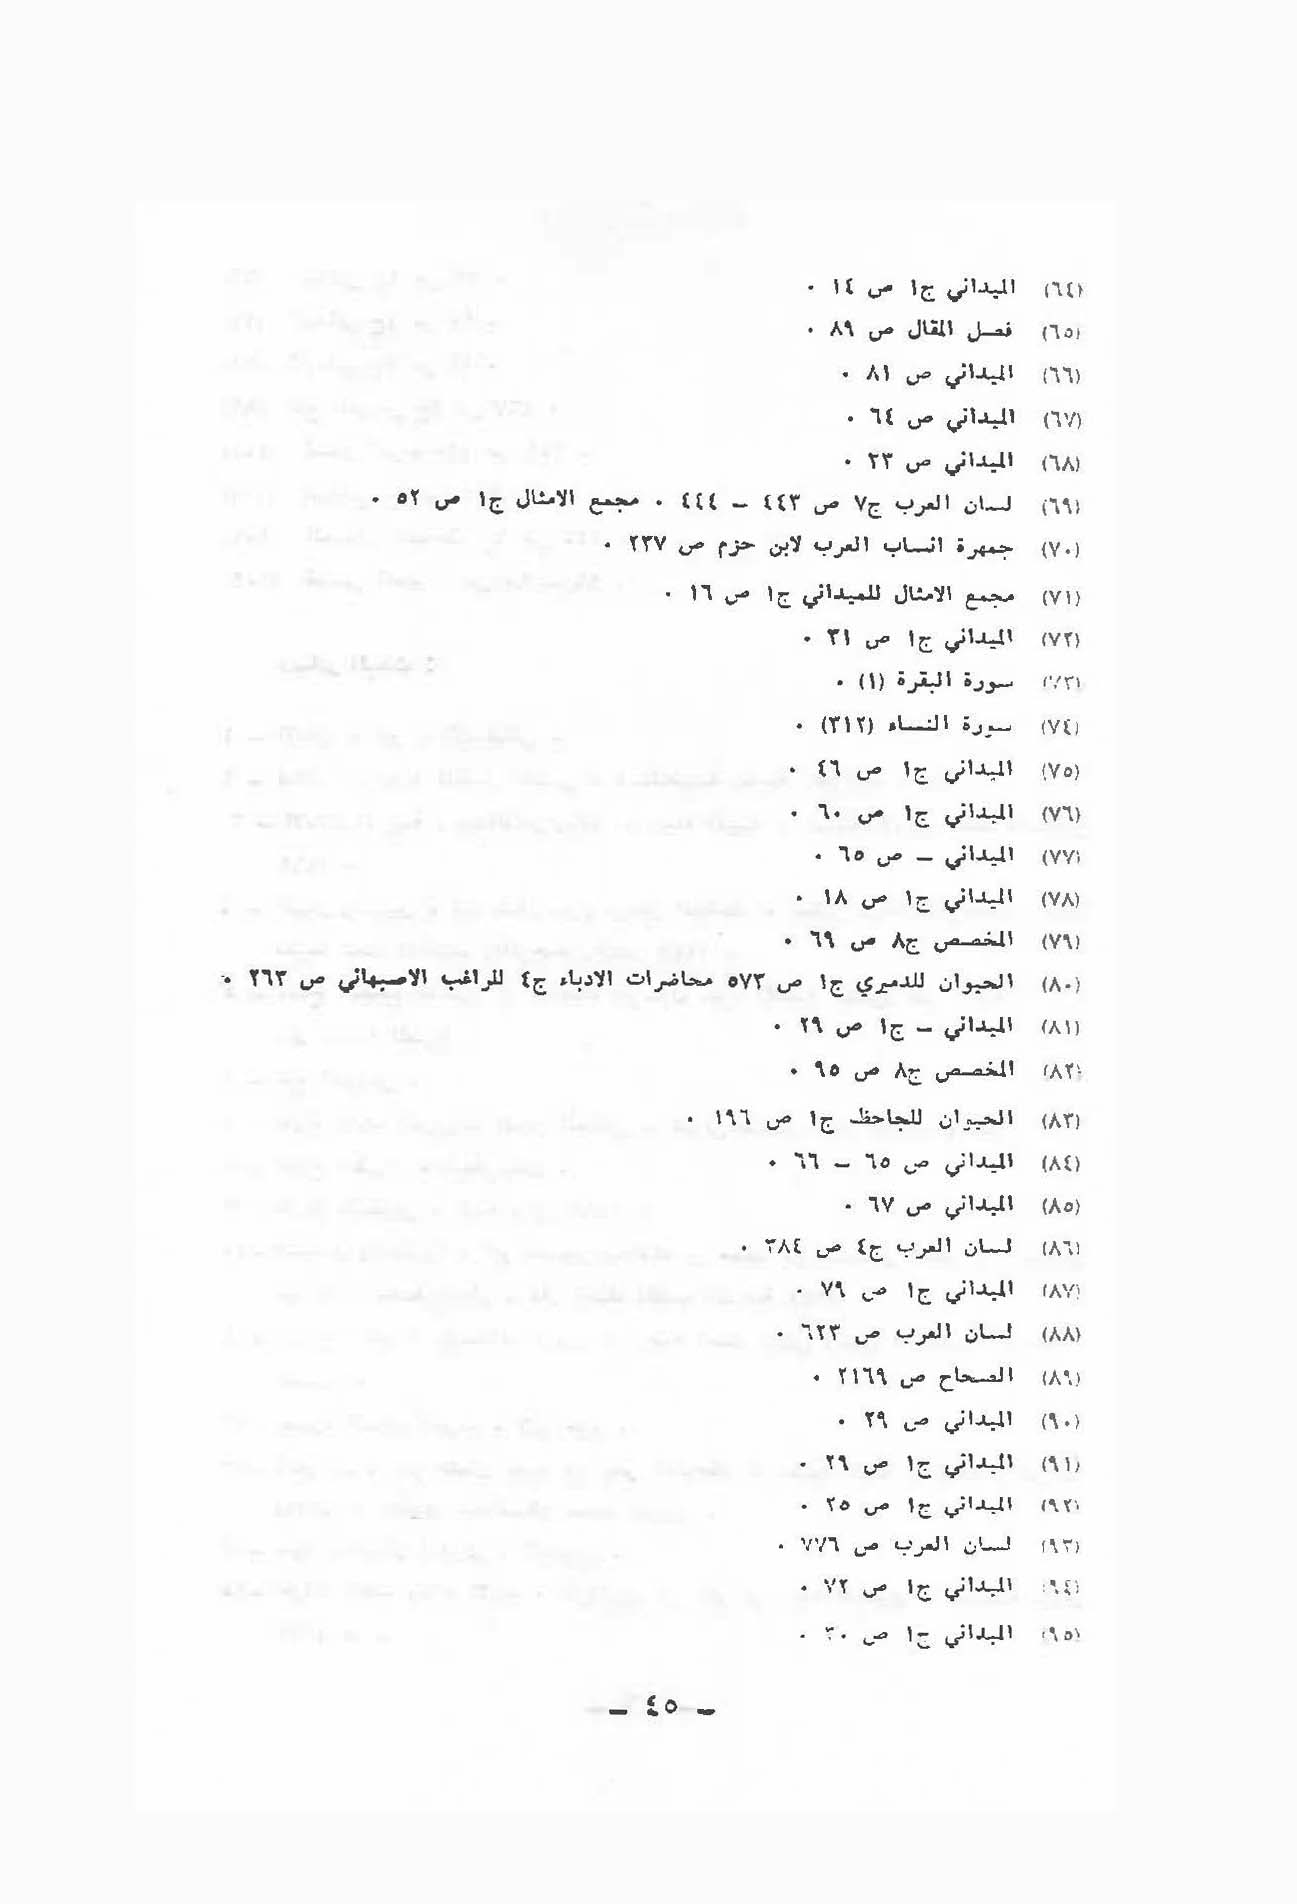 (٦٤) الميداني ج١ ص ١٤ ٠
(٦٥) فصل المقال ص ٨٩ ٠
(٦٦) الميداني ص ٨١ ٠
(٦٧) الميداني ص ٦٤ ٠
(٦٨) الميداني ص ٢٣ ٠
(٦٩) لسان العرب ج٧ ص ٤٤٣ – ٤٤٤ ٠ مجمع الامثال ج١ ص ٥٢ ٠
(٧٠) جمهرة انساب العرب لابن حزم ص ٢٣٧ ٠
(٧١) مجمع الامثال للميداني ج١ ص ١٦ ٠
(٧٢) الميداني ج١ ص ٣١ ٠
(٧٣) سورة البقرة (١) ٠
(٧٤) سورة النساء (٣١٢) ٠
(٧٥) الميداني ج١ ص ٤٦ ٠
(٧٦) الميداني ج١ ص ٦٠ ٠
(٧٧) الميداني – ص ٦٥ ٠
(٧٨) الميداني ج١ ص ١٨ ٠
(٧٩) المخصص ج٨ ص ٦٩ ٠
(٨٠) الحيوان للدميري ج١ ص ٥٧٣ محاضرات الادباء ج٤ للراغب الاصبهاني ص ٢٦٣ ٠
(٨١) الميداني – ج١ ص ٢٩ ٠
(٨٢) المخصص ج٨ ص ٩٥ ٠
(٨٣) الحيوان للجاحظ ج١ ص ١٩٦ ٠
(٨٤) الميداني ص ٦٥ – ٦٦ ٠
(٨٥) الميداني ص ٦٧ ٠
(٨٦) لسان العرب ج٤ ص ٣٨٤ ٠
(٨٧) الميداني ج١ ص ٧٩ ٠
(٨٨) لسان العرب ص ٦٢٣ ٠
(٨٩) الصحاح ص ٢١٦٩ ٠
(٩٠) الميداني ص ٢٩ ٠
(٩١) الميداني ج١ ص ٢٩ ٠
(٩٢) الميداني ج١ ص ٢٥ ٠
(٩٣) لسان العرب ص ٧٧٦ ٠
(٩٤) الميداني ج١ ص ٧٢ ٠
(٩٥) الميداني ج١ ص ٣٠ ٠
– ٤٥ –